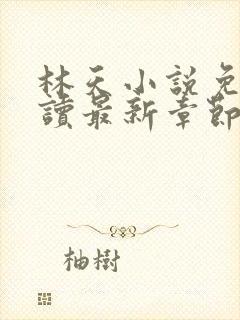 林天小說免
讀最新章節
柚樹